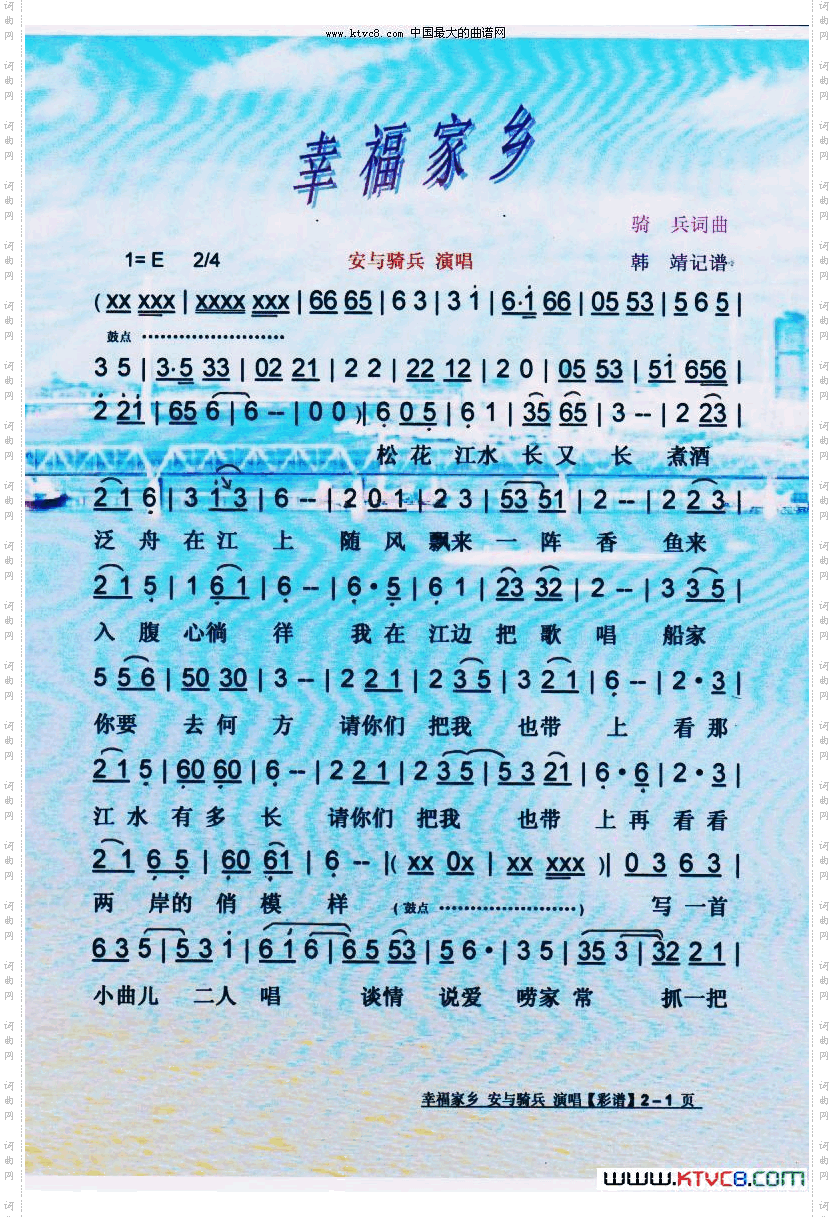 www.ktvc8.com 中国最大的曲谱网
幸福家乡
骑 兵词曲
1=E 2/4 安与骑兵 演唱 韩 靖记谱
( xx xxx | xxxx xxx | 66 65 | 6 3 | 3 1 | 6·1 66 | 05 53 | 5 6 5 |
鼓点
3 5 | 3·5 33 | 02 21 | 2 2 | 22 12 | 2 0 | 05 53 | 51 656 |
2 21 | 65 6 | 6 -- | 0 0 )| 6 0 5 | 6 1 | 35 65 | 3 -- | 2 23 |
松花 江水 长又 长 煮酒
2 1 6 | 3 1 3 | 6 -- | 2 0 1 | 2 3 | 53 51 | 2 -- | 2 2 3 |
泛舟在江 上 随风飘来一阵香 鱼来
2 1 5 | 1 6 1 | 6 -- | 6·5 | 6 1 | 23 32 | 2 -- | 3 3 5 |
入腹心徜 徉 我在江边把歌唱 船家
5 5 6 | 50 30 | 3 -- | 2 2 1 | 2 3 5 | 3 2 1 | 6 -- | 2·3 |
你要 去何方 请你们 把我 也带 上 看那
2 1 5 | 60 60 | 6 -- | 2 2 1 | 2 3 5 | 5 3 21 | 6·6 | 2·3 |
江水有多长 请你们 把我 也带 上再看看
2 1 6 5 | 60 61 | 6 -- |( xx 0x | xx xxx )| 0 3 6 3 |
两 岸的俏模样 (鼓点 ) 写一首
6 3 5 | 5 3 1 | 6 1 6 | 6 5 53 | 5 6· | 3 5 | 35 3 | 32 2 1 |
小曲儿 二人 唱 谈情 说爱 唠家常 抓一把
幸福家乡 安与骑兵 演唱【彩谱】2-1 页
www.KTVC8.com
词曲网